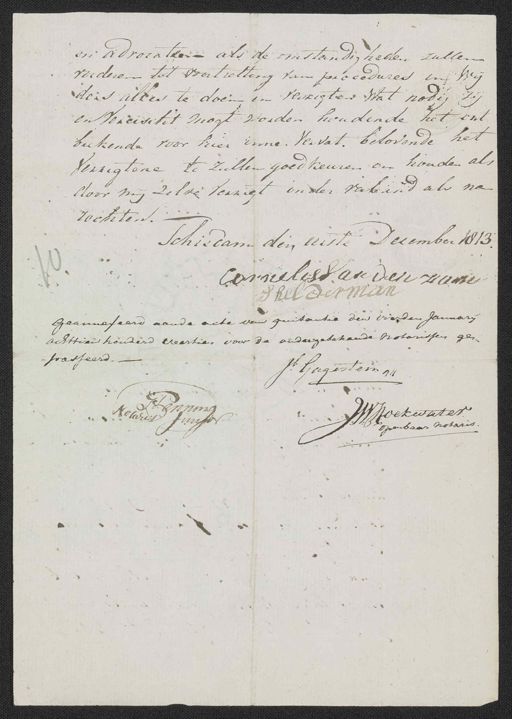 en advocaten als de omstandigheden zullen
vorderen tot voortzetting van procedures en wij
ders alles te doen en verrigten wat nodig zij
en vereischt mogt worden houdende het ont
brekende voor hier inne vervat. belovende het
verrigtene te zullen goedkeuren en houden als
door mij zelve verrigt onder verbind als na
rechten.
Schiedam den eerste December 1813.
Cornelis van der
Kelderman
geannexeerd aande acte van quitantie den vierden January
achttien honderd veertien voor de ondergetekende notarissen ge-
passeerd.
Notaris
JW Hoekwater
openbaar notaris.